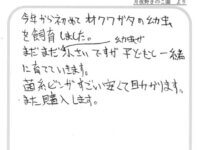 月夜野きのこ園 より
今年から初めて オオクワガタの幼虫
を飼育しました。 幼虫が
まだまだ小さいですが 子どもと一緒
に育てています。
菌糸ビンがすごい安くて助かります。
また購入します。